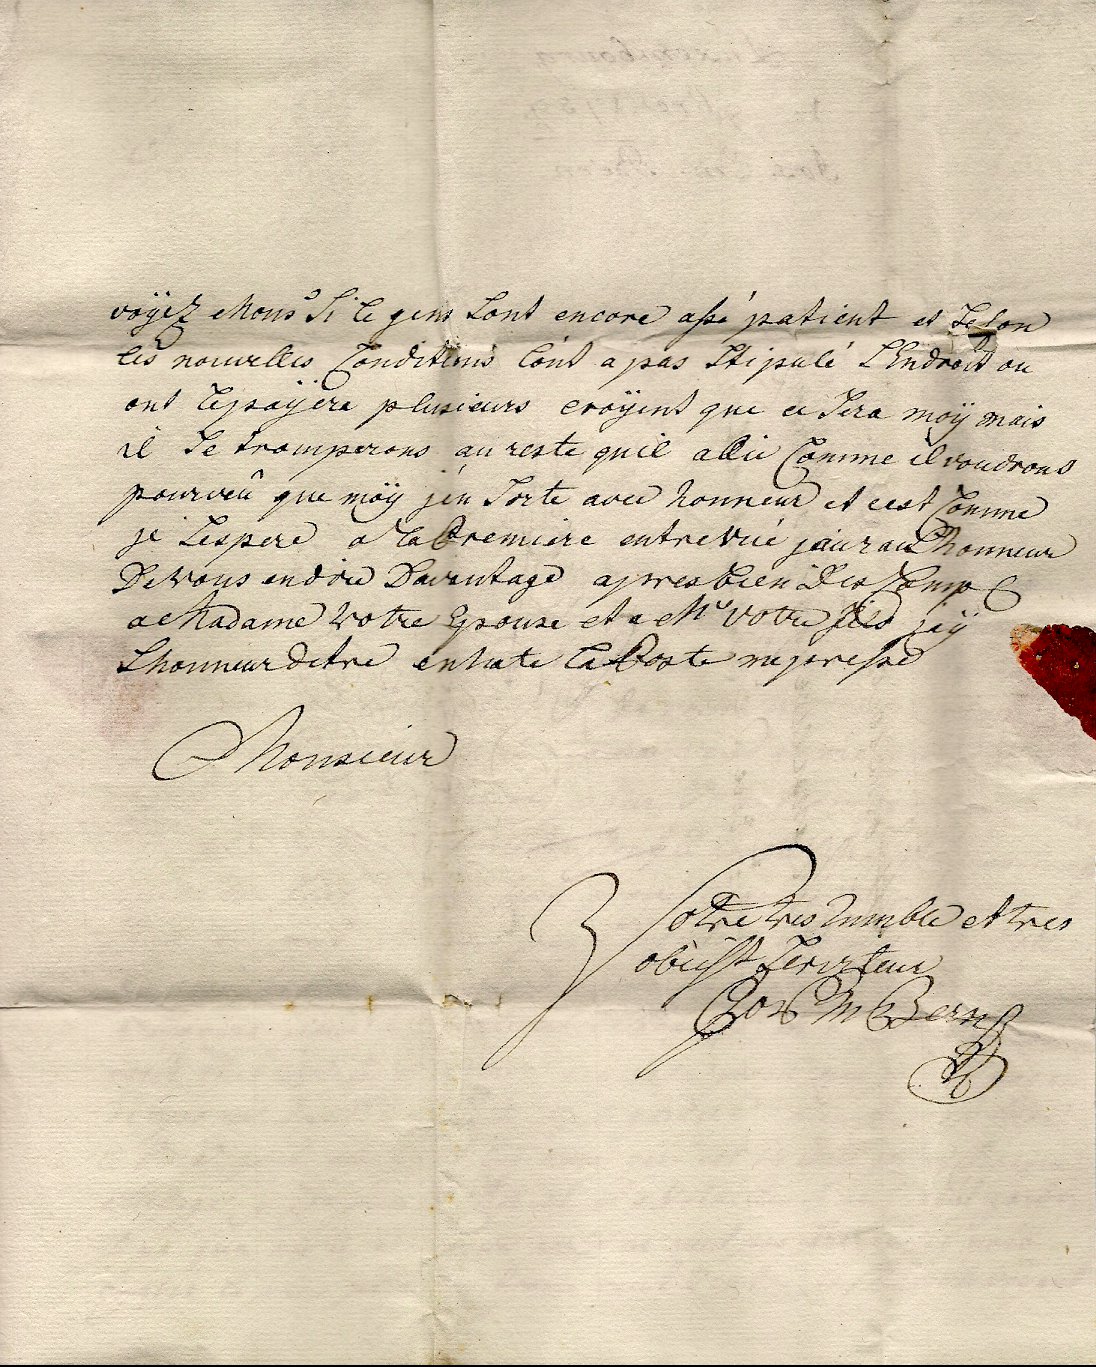 voÿez Mons.r Si le gens Sont encore assé patient et Selon
les nouvelles Conditions l'ont a pas Stipulé L'Endroit ou
ont Le paÿera plusieurs croÿent que ce Sera moÿ mais
il Se tromperons au reste quil allie Comme il voudrons
pourveû que moÿ j'en Sorte avec honneur et cest Comme
je Lespere a la Premiere entrevüe jaurau Lhonneur
De vous en dire Davantage apres bien Des Comp
a Madame votre Epouse et a Mr votre fils jeÿ
Lhonneur detre en hate la Poste me presse
Monsieur
Votre tres humble et tres
obeiss.t Serviteur
Bern